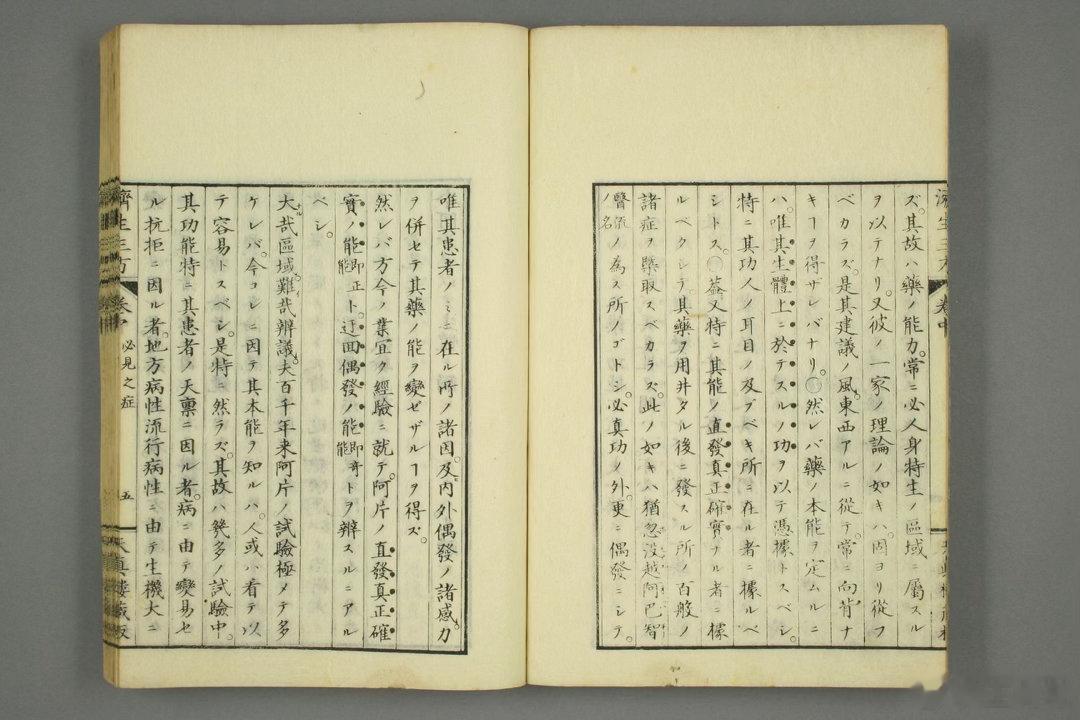 ズ。其故ハ藥ノ能力。常ニ必人身特生ノ區域ニ屬スル
ヲ以テナリ。又彼ノ一家ノ理論ノ如キハ。固ヨリ從フ
ベカラズ。是其建議ノ風。東西アルニ從テ。常ニ向背ナ
キヿヲ得ザレバナリ。〇然レバ藥ノ本能ヲ定ムルニ
ハ。唯其生體上ニ於テスルノ功ヲ以テ憑據トスベシ。
特ニ其功人ノ耳目ノ及ブベキ所ニ在ル者ニ據ルベ
シトス。〇葢又特ニ其能ノ直發真正確實ナル者ニ據
ルベクシテ。其藥ヲ用井タル後ニ發スル所ノ百般ノ
諸症ヲ槩取スベカラズ。此ノ如キハ猶忽没越阿巴智
醫流ノ名ノ為ス所ノゴトシ。必真功ノ外。更ニ偶發ニシテ。
唯其患者ノミニ在ル所ノ諸因。及内外偶發ノ諸感力
ヲ併セテ其藥ノ能ヲ變ゼザルヿヲ得ズ。
然レバ方今ノ業宜ク經驗ニ就テ。阿片ノ直發真正確
實ノ能即正能ト。迂囬偶發ノ能即奇能トヲ辨スルニアル
ベシ。
大哉區域。難哉辨議。夫百千年来阿片ノ試驗極メテ多
ケレバ。今コレニ因テ其本能ヲ知ルハ。人或ハ看テ以
テ容易トスベシ。是特ニ然ラズ。其故ハ幾多ノ試驗中。
其功能特ニ其患者ノ天禀ニ因ル者。病ニ由テ變易セ
ル抗拒ニ因ル者。地方病性流行病性ニ由テ生機大ニ
濟生三方
卷中
必見之症
五